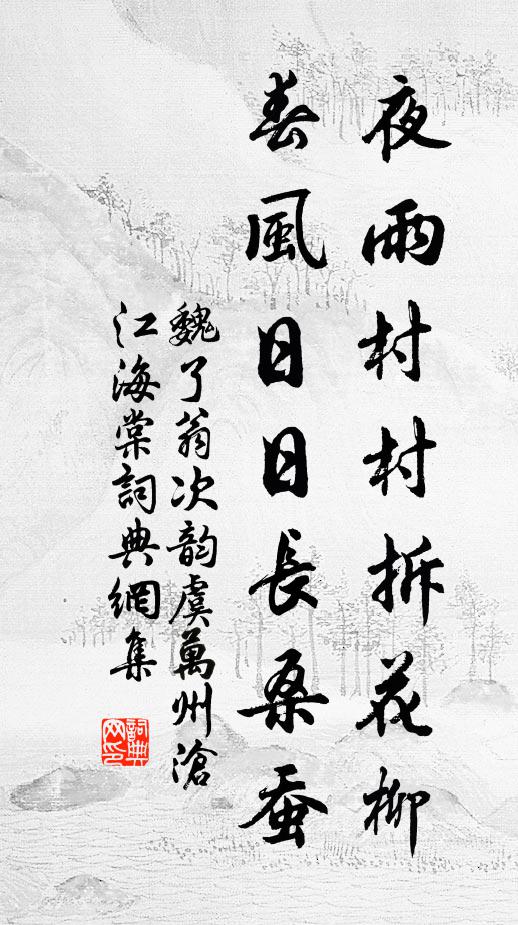 夜雨村村拆花柳
春風日日長桑蚕
魏了翁次韵虞萬州滄
江海棠詞典網集
詞典
网印